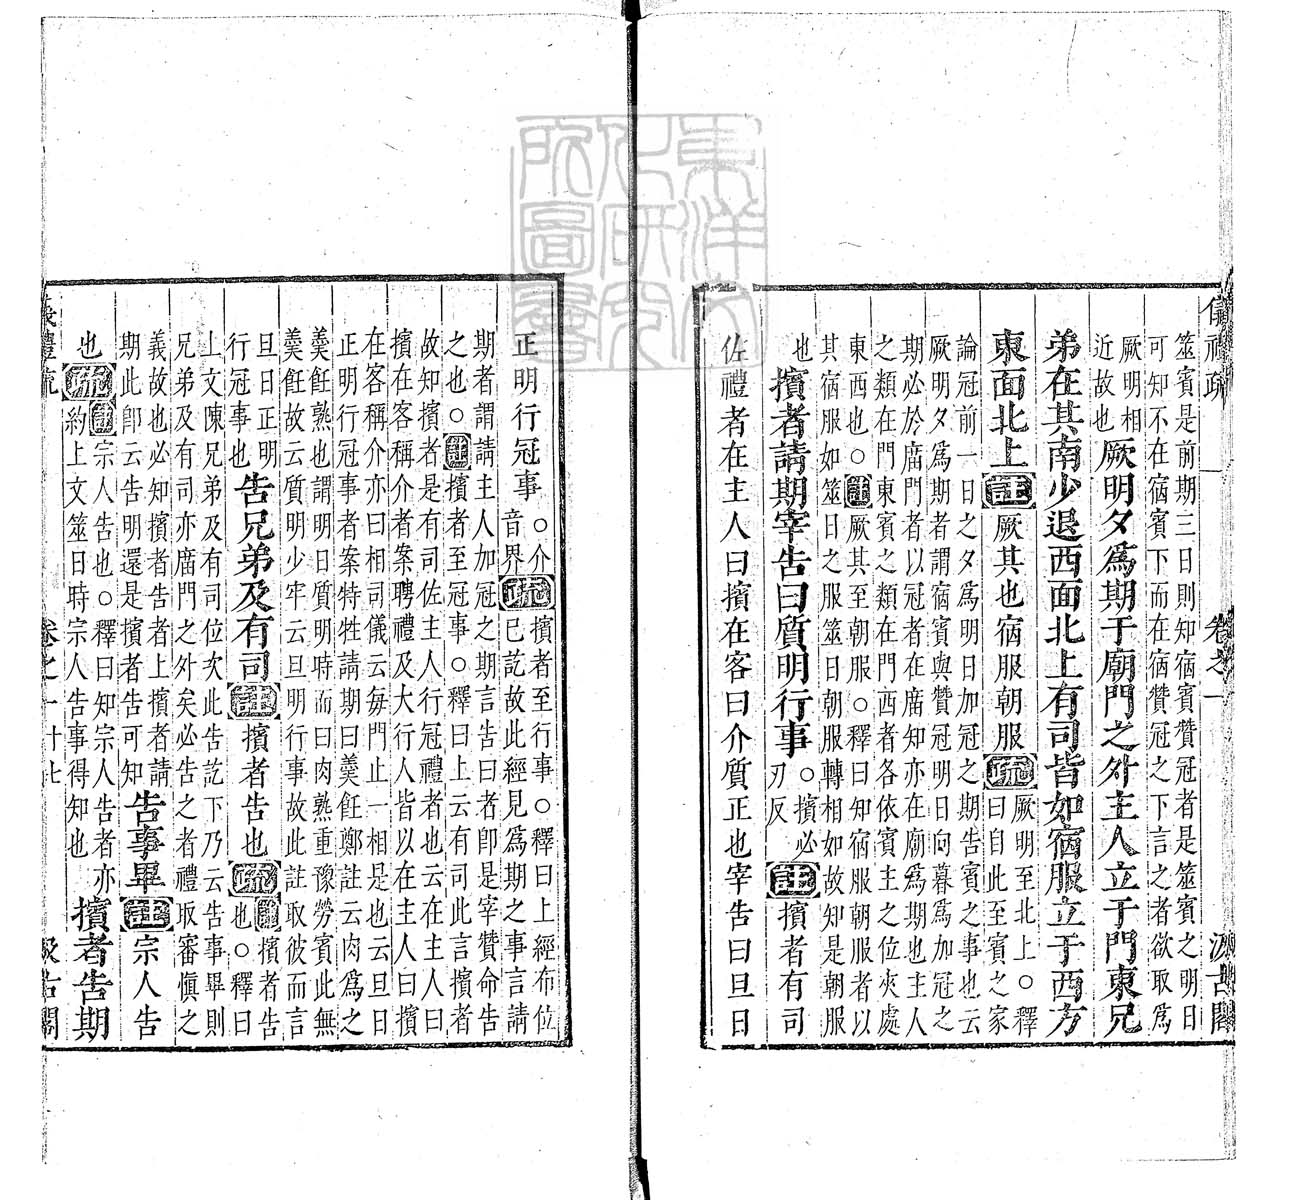 筮賓是前期三日則知宿賓贊冠者是筮賓之明日
可知不在宿賓下而在宿贊冠之下言之者欲取爲
厥明相
近故也
厥明夕爲期于廟門之外主人立于門東兄
弟在其南少退西面北上有司皆如宿服立于西方
東面北上註厥其也宿服朝服疏
厥明至北上○釋
曰自此至賓之家
論冠前一日之夕爲明日加冠之期告賓之事也云
厥明夕爲期者謂宿賓與贊冠明日向暮爲加冠之
期必於廟門者以冠者在廟知亦在廟爲期也主人
之類在門東賓之類在門西者各依賓主之位夾處
東西也○註厥其至朝服○釋曰知宿服朝服者以
其宿服如筮日之服筮日朝服轉相如故知是朝服
也
擯者請期宰告曰質明行事
○擯必
刃反
註擯者有司
佐禮者在主人曰擯在客曰介質正也宰告曰旦日
正明行冠事
○介
音界
疏
擯者至行事○釋曰上經布位
已訖故此經見爲期之事言請
期者謂請主人加冠之期言告曰者卽是宰贊命告
之也○註擯者至冠事○釋曰上云有司此言擯者
故知擯者是有司佐主人行冠禮者也云在主人曰
擯在客稱介者案聘禮及大行人皆以在主人曰擯
在客稱介亦曰相司儀云每門止一相是也云旦日
正明行冠事者案特牲請期曰羹飪鄭註云肉爲之
羹飪熟也謂明日質明時而曰肉熟重豫勞賓此無
羹飪故云質明少牢云旦明行事故此註取彼而言
旦日正明
行冠事也
告兄弟及有司註擯者告也疏
註擯者告
也○釋曰
上文陳兄弟及有司位次此告訖下乃云告事畢則
兄弟及有司亦廟門之外矣必告之者禮取審慎之
義故也必知擯者告者上擯者請
期此卽云告明還是擯者告可知
告事畢註宗人告
也疏
註宗人告也○釋曰知宗人告者亦
約上文筮日時宗人告事得知也
擯者告期
儀禮疏
卷之一
十七
汲古閣